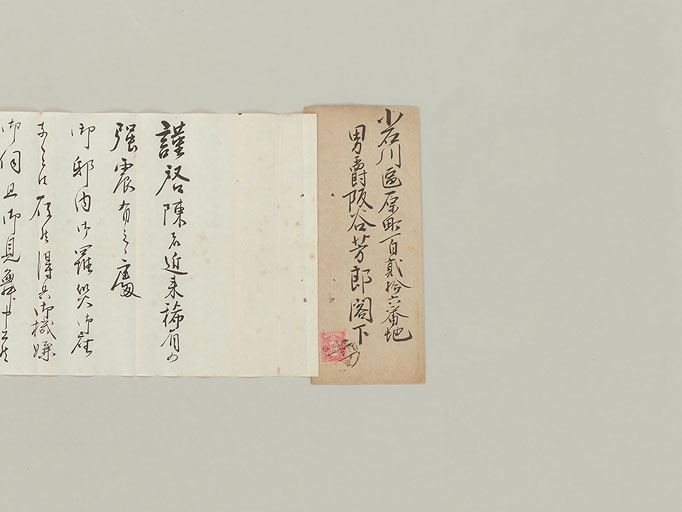 小石川區原町百貳拾六番地
男爵阪谷芳郎閣下
謹啓陳者近来稀有の
强震有之候處
御邸内御羅災御座
得共御機嫌
御伺且御見舞申上度